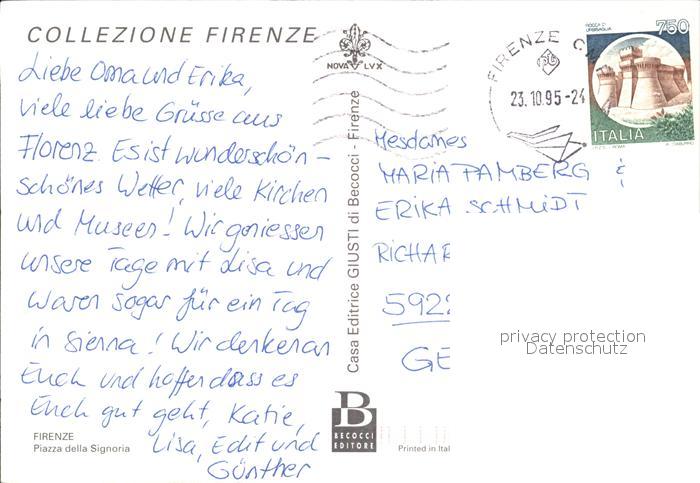 COLLEZIONE FIRENZE
NOVA LVX
Liebe Oma und Erika,
viele liebe Grüsse aus
Florenz. Es ist wunderschön –
schönes Wetter, viele Kirchen
und Museen! Wir geniessen
unsere Tage mit Lisa und
waren sogar für ein Tag
in Sienna! Wir denken an
Euch und hoffen dass es
Euch gut geht, Katie,
Lisa, Edit und
Günther
FIRENZE
Piazza della Signoria
Casa Editrice GIUSTI di Becocci - Firenze
B
BECOCCI
EDITORE
Printed in Ital
FIRENZE C
23.10.95-24
ROCCA DI
URBISAGLIA
750
ITALIA
Mesdames
MARIA PAMBERG &
ERIKA SCHMIDT
RICHAR
592
GE
privacy protection
Datenschutz